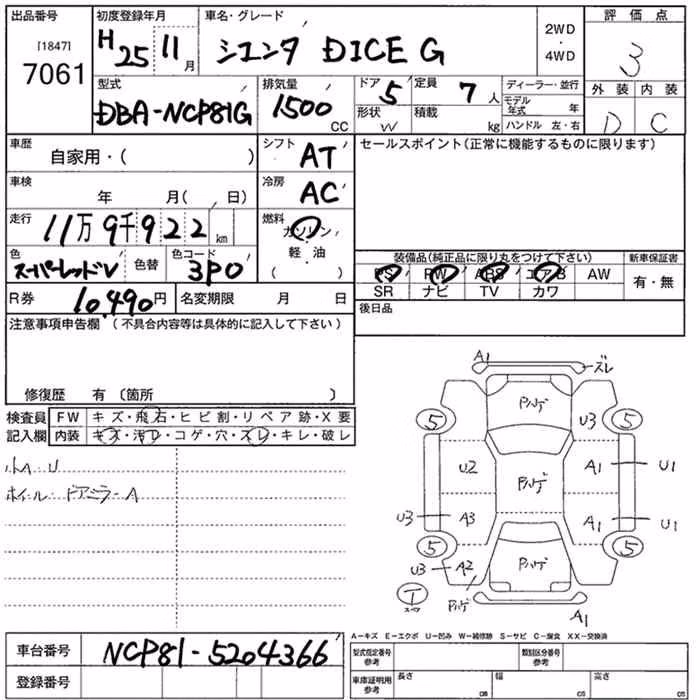 出品番号 初度登録年月 車名・グレード 2WD ・ 4WD 評価点
[1847] 7061 H25 11月 シエンタ DICE G 3
型式 排気量 ドア 5 定員 7人 ディーラー・並行 外装 内装
DBA-NCP81G 1500 CC 形状 W 積載 kg モデル年式 年 D C
ハンドル 左・右
車歴 自家用・( ) シフト AT セールスポイント(正常に機能するものに限ります)
車検 年 月( 日) 冷房 AC
走行 11万9千922 km 燃料 ガソリン・軽・油 ( )
色 スーパーレッドV 色替 色コード 3P0 装備品(純正品に限り丸をつけて下さい) 新車保証書
PS PW ABS エアB AW 有・無
SR ナビ TV カワ
R券 10,490円 名変期限 月 日 後日品
注意事項申告欄 (不具合内容等は具体的に記入して下さい)
修復歴 有 〔箇所 〕
検査員 FW キズ・飛石・ヒビ割・リペア跡・X要
記入欄 内装 キズ・汚レ・コゲ・穴・ズレ・キレ・破レ
小A U
ホイール ドアミラーA
A1 ズレ
ハゲ
5 U3 5
U2 ハゲ A1 U1
U3 A3 A1 U1
5 5
U3 A2 ハゲ
T ハゲ
A1
A−キズ E−エクボ U−凹み W−補修跡 S−サビ C−腐食 XX−交換済
車台番号 NCP81-5204366 型式指定番号 参考 類別区分番号 参考
登録番号 車庫証明用 参考 長さ cm 幅 cm 高さ cm